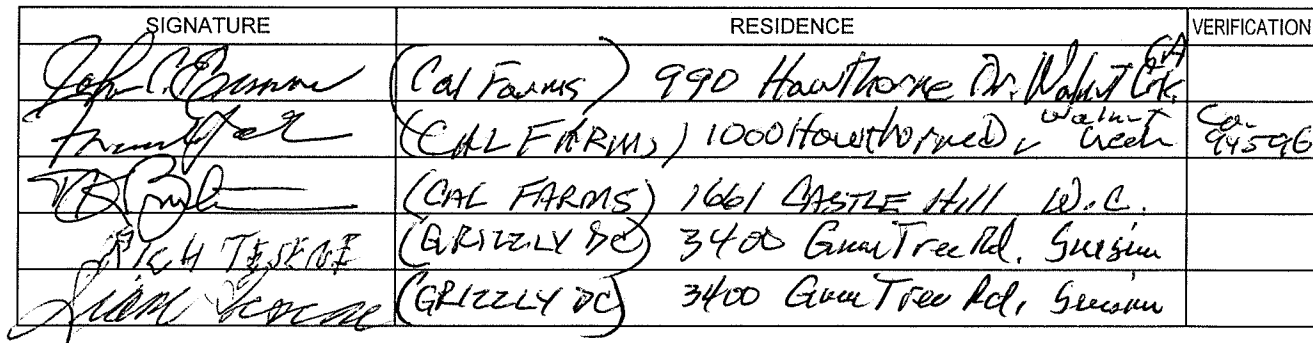 SIGNATURE RESIDENCE VERIFICATION
John C. (Cal Farms) 990 Hawthorne Dr. Walnut Crk. CA
(CAL FARMS) 1000 Hawthorne Dr Walnut Creek Ca. 94596
(CAL FARMS) 1661 CASTLE Hill W.C.
RICH (GRIZZLY DC) 3400 Gum Tree Rd. Suisun
(GRIZZLY DC) 3400 Gum Tree Rd, Suisun